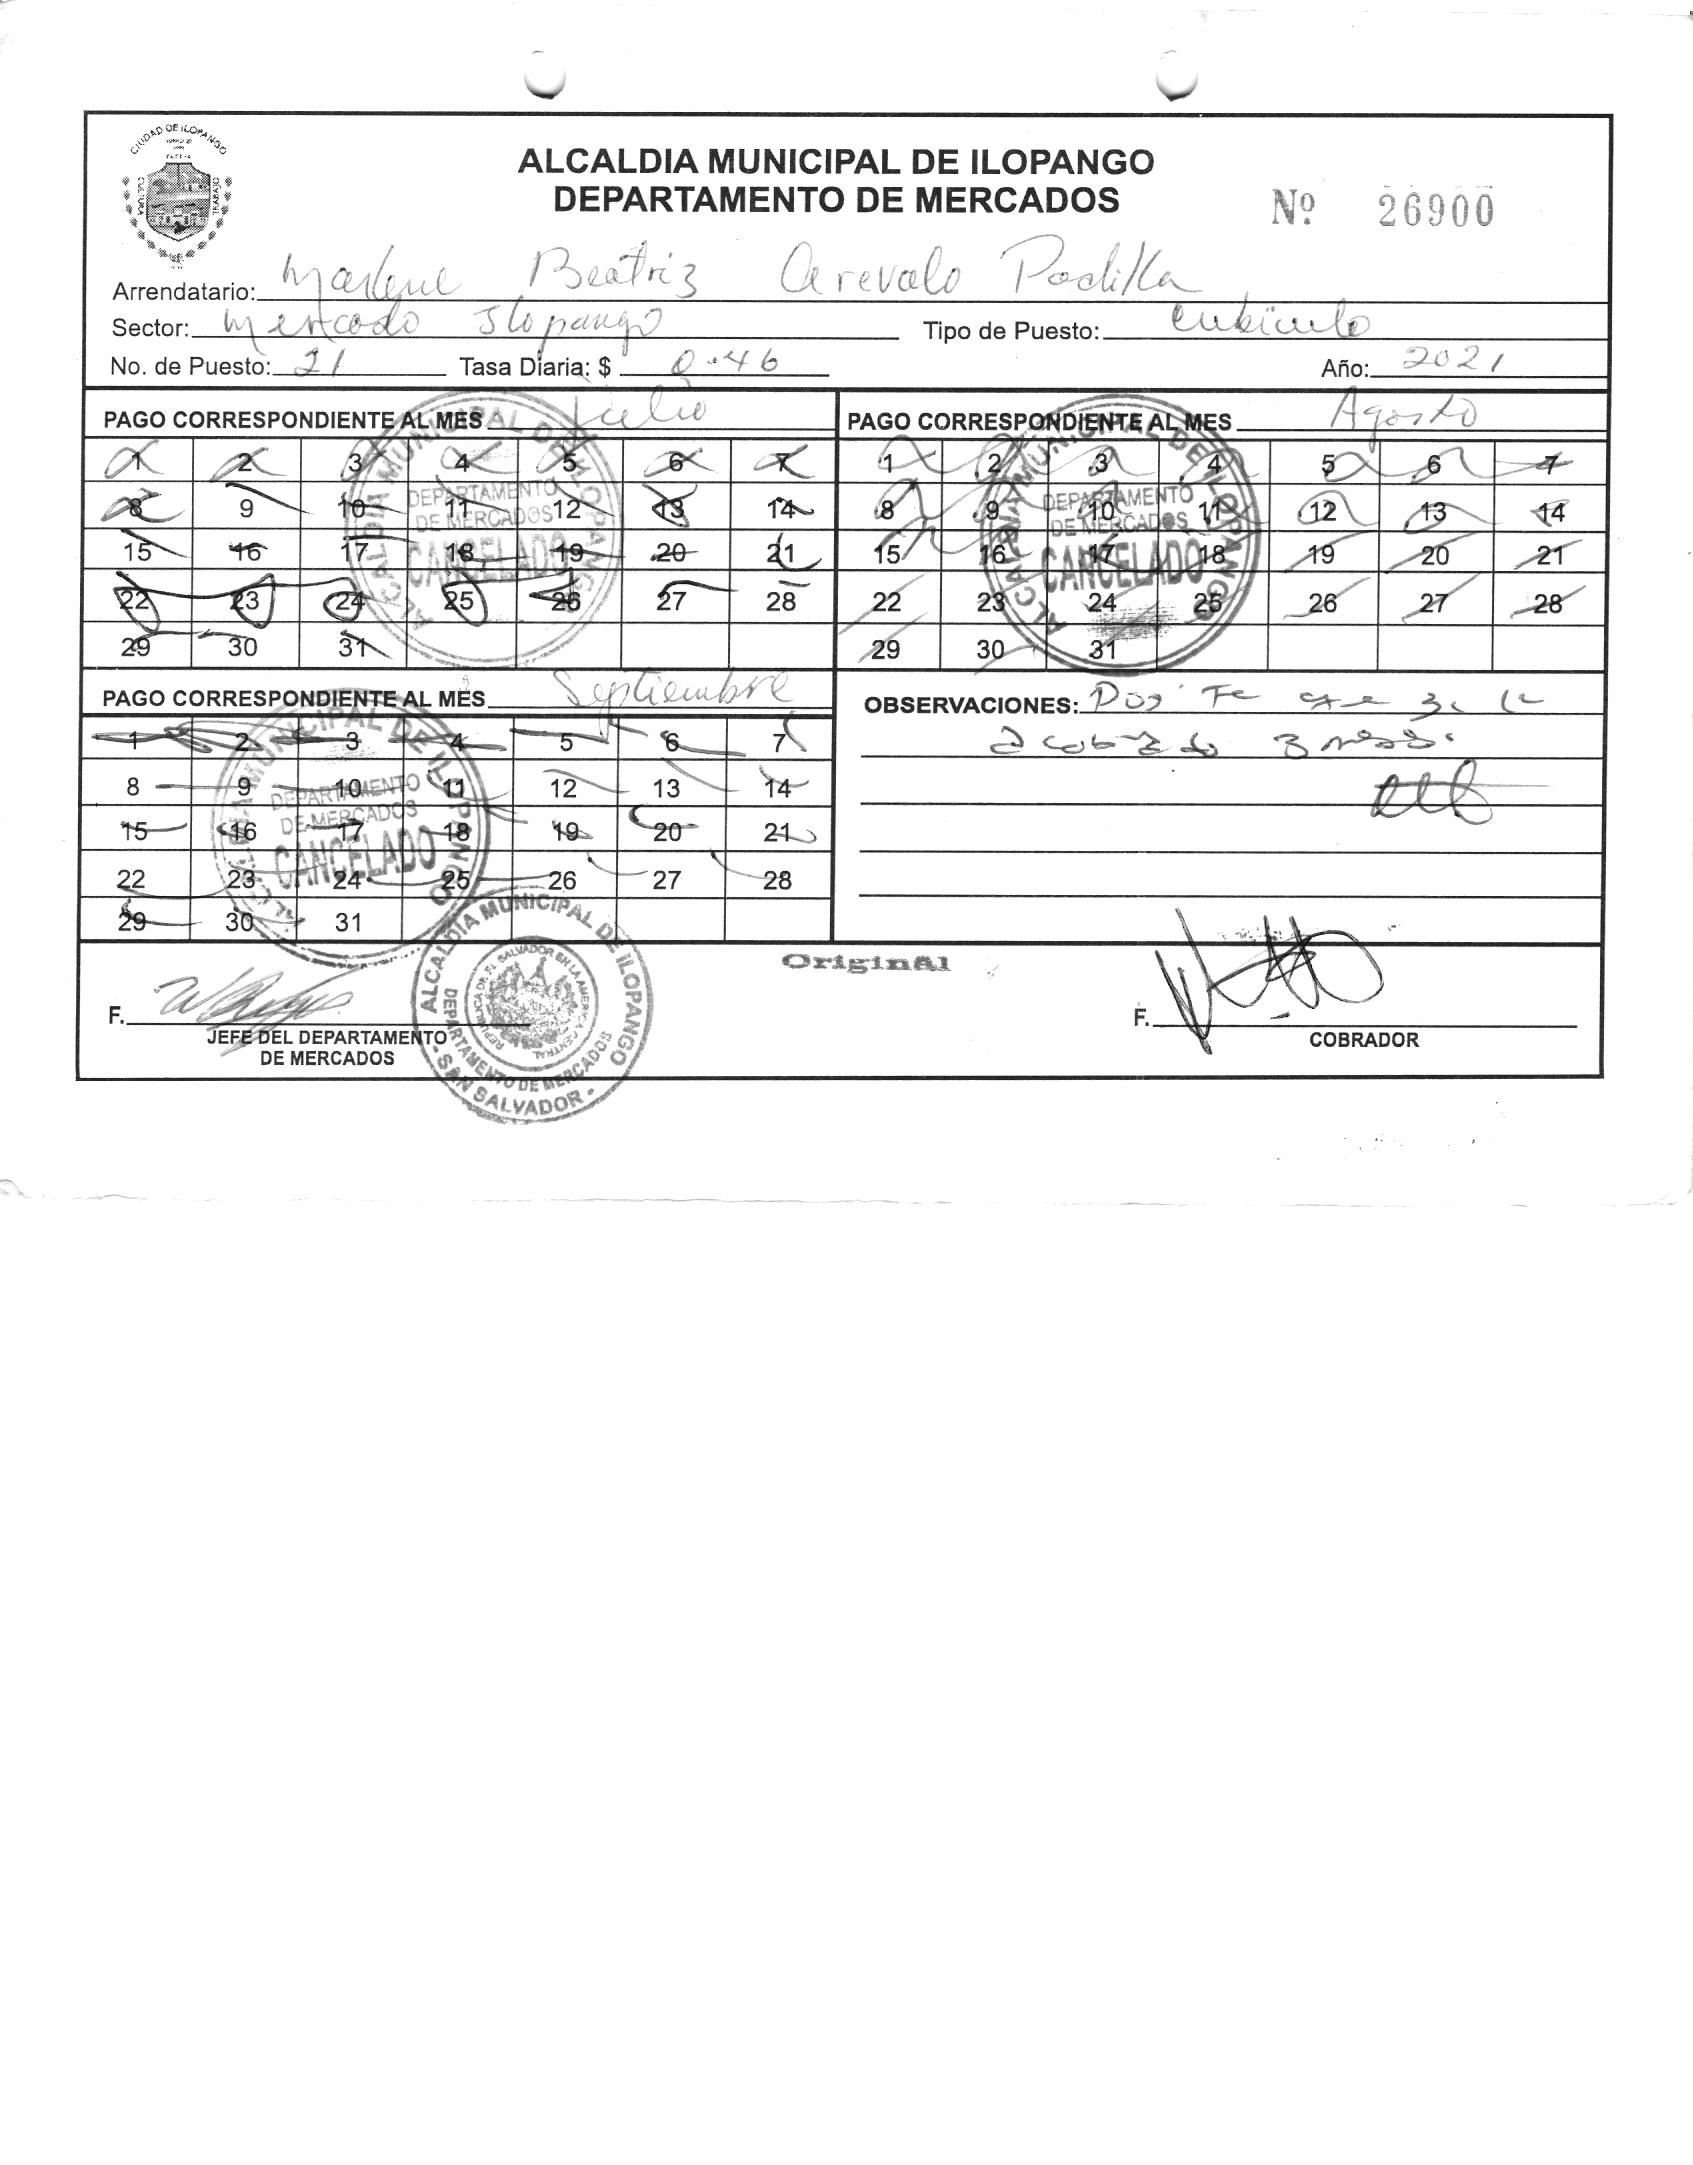 CIUDAD DE ILOPANGO
CULTURA
TRABAJO
ALCALDIA MUNICIPAL DE ILOPANGO
DEPARTAMENTO DE MERCADOS
Nº 26900
Arrendatario: Marlene Beatriz Arevalo Padilla
Sector: Mercado Ilopango Tipo de Puesto: Cubiculo
No. de Puesto: 21 Tasa Diaria: $ 0.46 Año: 2021
PAGO CORRESPONDIENTE AL MES Julio
1 2 3 4 5 6 7
8 9 10 11 12 13 14
15 16 17 18 19 20 21
22 23 24 25 26 27 28
29 30 31
ALCALDIA MUNICIPAL DE ILOPANGO
DEPARTAMENTO
DE MERCADOS
CANCELADO
PAGO CORRESPONDIENTE AL MES Agosto
1 2 3 4 5 6 7
8 9 10 11 12 13 14
15 16 17 18 19 20 21
22 23 24 25 26 27 28
29 30 31
ALCALDIA MUNICIPAL DE ILOPANGO
DEPARTAMENTO
DE MERCADOS
CANCELADO
PAGO CORRESPONDIENTE AL MES Septiembre
1 2 3 4 5 6 7
8 9 10 11 12 13 14
15 16 17 18 19 20 21
22 23 24 25 26 27 28
29 30 31
ALCALDIA MUNICIPAL DE ILOPANGO
DEPARTAMENTO
DE MERCADOS
CANCELADO
OBSERVACIONES: Doy Fe que
3
Original
F.
JEFE DEL DEPARTAMENTO
DE MERCADOS
ALCALDIA MUNICIPAL DE ILOPANGO
DEPARTAMENTO DE MERCADOS
REPUBLICA DE EL SALVADOR EN LA AMERICA CENTRAL
- SAN SALVADOR -
F.
COBRADOR